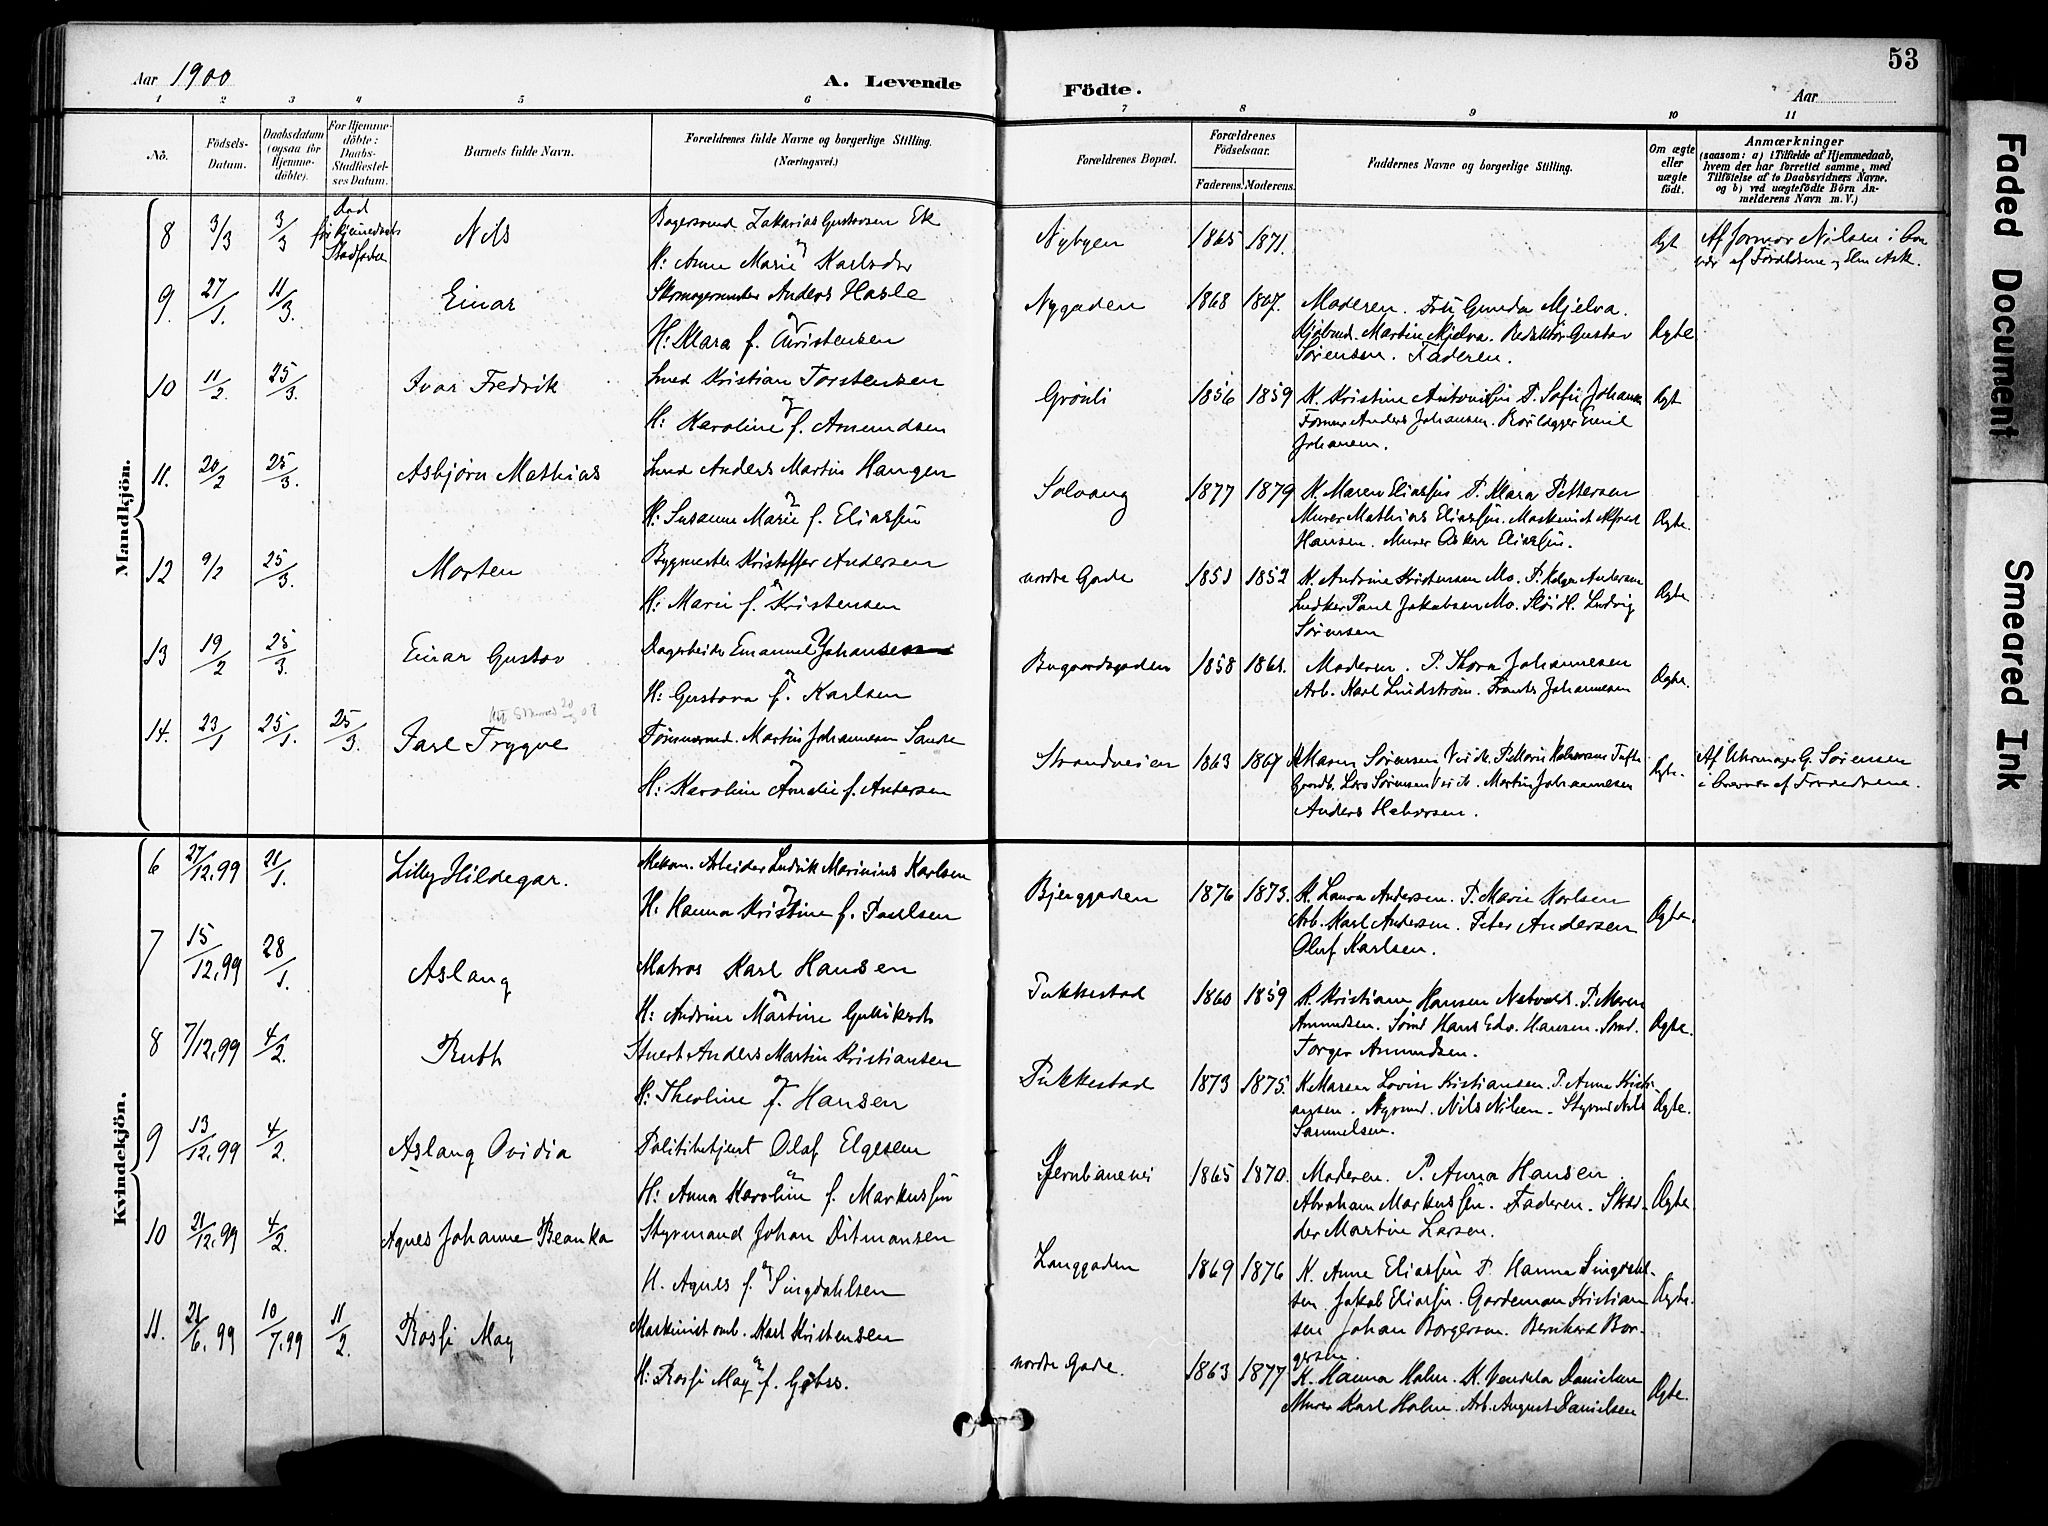 53
Aar 1900
A. Levende
Födte.
Aar
1 2 3 4 5 6 7 8 9 10 11
No.
Födsels-Datum.
Daabsdatum (ogsaa for Hjemme-döbte).
For Hjemme-döbte: Daabs-Stadfæstel-ses Datum.
Barnets fulde Navn.
Forældrenes fulde Navne og borgerlige Stilling.
(Næringsvei.)
Forældrenes Bopæl.
Forældrenes Födselsaar.
Faderens. Moderens.
Faddernes Navne og borgerlige Stilling.
Om ægte eller uægte födt.
Anmærkninger
(saasom: a) i Tilfælde af Hjemmedaab,
hvem der har forrettet samme, med
Tilföielse af to Daabsvidners Navne.
og b) ved uægtefödte Börn An-
melderens Navn m. V.)
Mandkjön.
8 3/3 3/3 Död før hjemmedaabs Stadfæstelse Nils Bagersvend Zakarias Gustavsen Ek
H: Anne Marie Karlsdtr
Nybyen 1865 1871. Ægt Af Jormor Nilsen i Nær-
vær af Forældrene
9. 27/1. 11/3. Einar Skomagermester Anders Hasle
H: Klara f. Christensen
Nygaden 1868 Moderen. Frü Gunda Mjelva.
Martin Mjelva. Redaktör Gustav
Sörensen. Faderen.
Ægte
10 11/2. 25/3. Ivar Fredrik Smed Kristian Torstensen
H: Karoline f. Amundsen
Grönli 1856 1859 K. Kristine P. Sofie Johansen
Anders Johansen. Emil
Johansen.
Ægt
11. 20/2 25/3. Asbjörn Mathias Smed Anders Martin Haugen
H: Susanne Marie f. Eliassen
Solvang 1877 1879 K. Maren Eliassen P. Klara Pettersen
Murer Mathias Eliassen. Maskinist Alfred
Hansen. Murer Oskar Eliassen.
Ægte.
12 9/2 25/3. Morten Bygmester Kristoffer Andersen
H: Marie f. Kristensen
nordre Gade 1851 1852 K. Andrine Kristensen Mo. P. Helga Andersen
Paul Jakobsen Mo. Ludvig
Sörensen
Ægte.
13 19/2 25/3. Einar Gustav Dagarbeider Emanuel Johansen
H: Gustava f. Karlsen
Bugaardsgaden 1858 1861. Moderen. P. Thora Johannesen
Arb. Karl Lindström. Frants Johannesen
Ægte.
14. 23/1 25/1. 25/3. Jarl Trygve Martin Johannesen Sande
H: Karoline Amalie f. Andersen
Strandveien 1863 1867 K. Maren Sörensen
Gaardb. Lars Sörensen Martin Johannesen
Anders Halvorsen.
Ægte. Af Uhrmager G. Sörensen
i Nærvær af Forældrene.
Kvindekjön.
6 27/12.99 21/1. Lilly Hildegar. Mekan. Arbeider Ludvik Marinius Karlsen
H: Hanna Kristine f. Paulsen
Bjerggaden 1876 1873. K. Laura Andersen. P. Marie Karlsen
Arb. Karl Andersen. Peter Andersen
Oluf Karlsen.
Ægte.
7 15/12.99 28/1. Aslaug Matros Karl Hansen
H: Andrine Martine Gulliksdtr
Pukkestad 1860 1859 K. Kristiane Hansen P. Maren
Amundsen. Hans Edv. Hansen. Smd.
Torger Amundsen.
Ægte.
8 7/12.99 4/2. Ruth Stuert Anders Martin Kristiansen
H: Theoline f. Hansen
Pukkestad 1873 1875. K. Maren Lovise Kristiansen. P. Anne Kristi-
ansen. Nils Nilsen. Styrmd Nils
Samuelsen.
Ægte.
9 13/12.99 4/2. Aslaug Ovidia Politibetjent Olaf Elgesem
H: Anna Karoline f. Markussen
Jernbanevei 1865 1870. Moderen. P. Anna Hansen.
Abraham Markussen. Faderen. Skræd-
der Martin Larsen.
Ægte.
10 21/12.99 4/2. Agnes Johanne Beanka Styrmand Johan Ditmansen
H. Agnes f. Singdahlsen
Langgaden 1869 1876 K. Anne Eliassen P. Hanna Singdahl-
sen. Jakob Eliassen. Kristian-
sen Johan Borgersen. Bernhard Bor-
gersen.
Ægte.
11. 21/6.99 10/7.99 11/2. Rossi May Maskinist omb. Karl Kristensen
H: Rossi May f. Gibbs.
nordre Gade. 1863 1877 K. Hanna Holm. K. Vendela Danielsen
Murer Karl Holm. Arb. August Danielsen
Ægte.
Faded Document
Smeared Ink